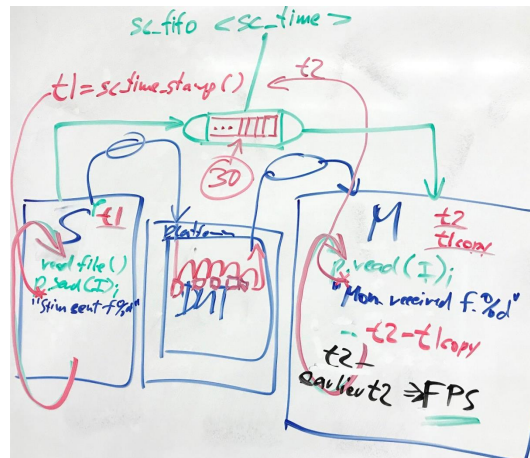 sc_fifo <sc_time>
t1=sc_time_stamp()
t2
30
S t1
read file()
p.send(I);
"Stim sent f%d"
Platform
DUT
M t2
t1copy
p.read(I);
"Mon received f.%d"
-- t2-t1copy
t2-
earlier t2 ⇒ FPS